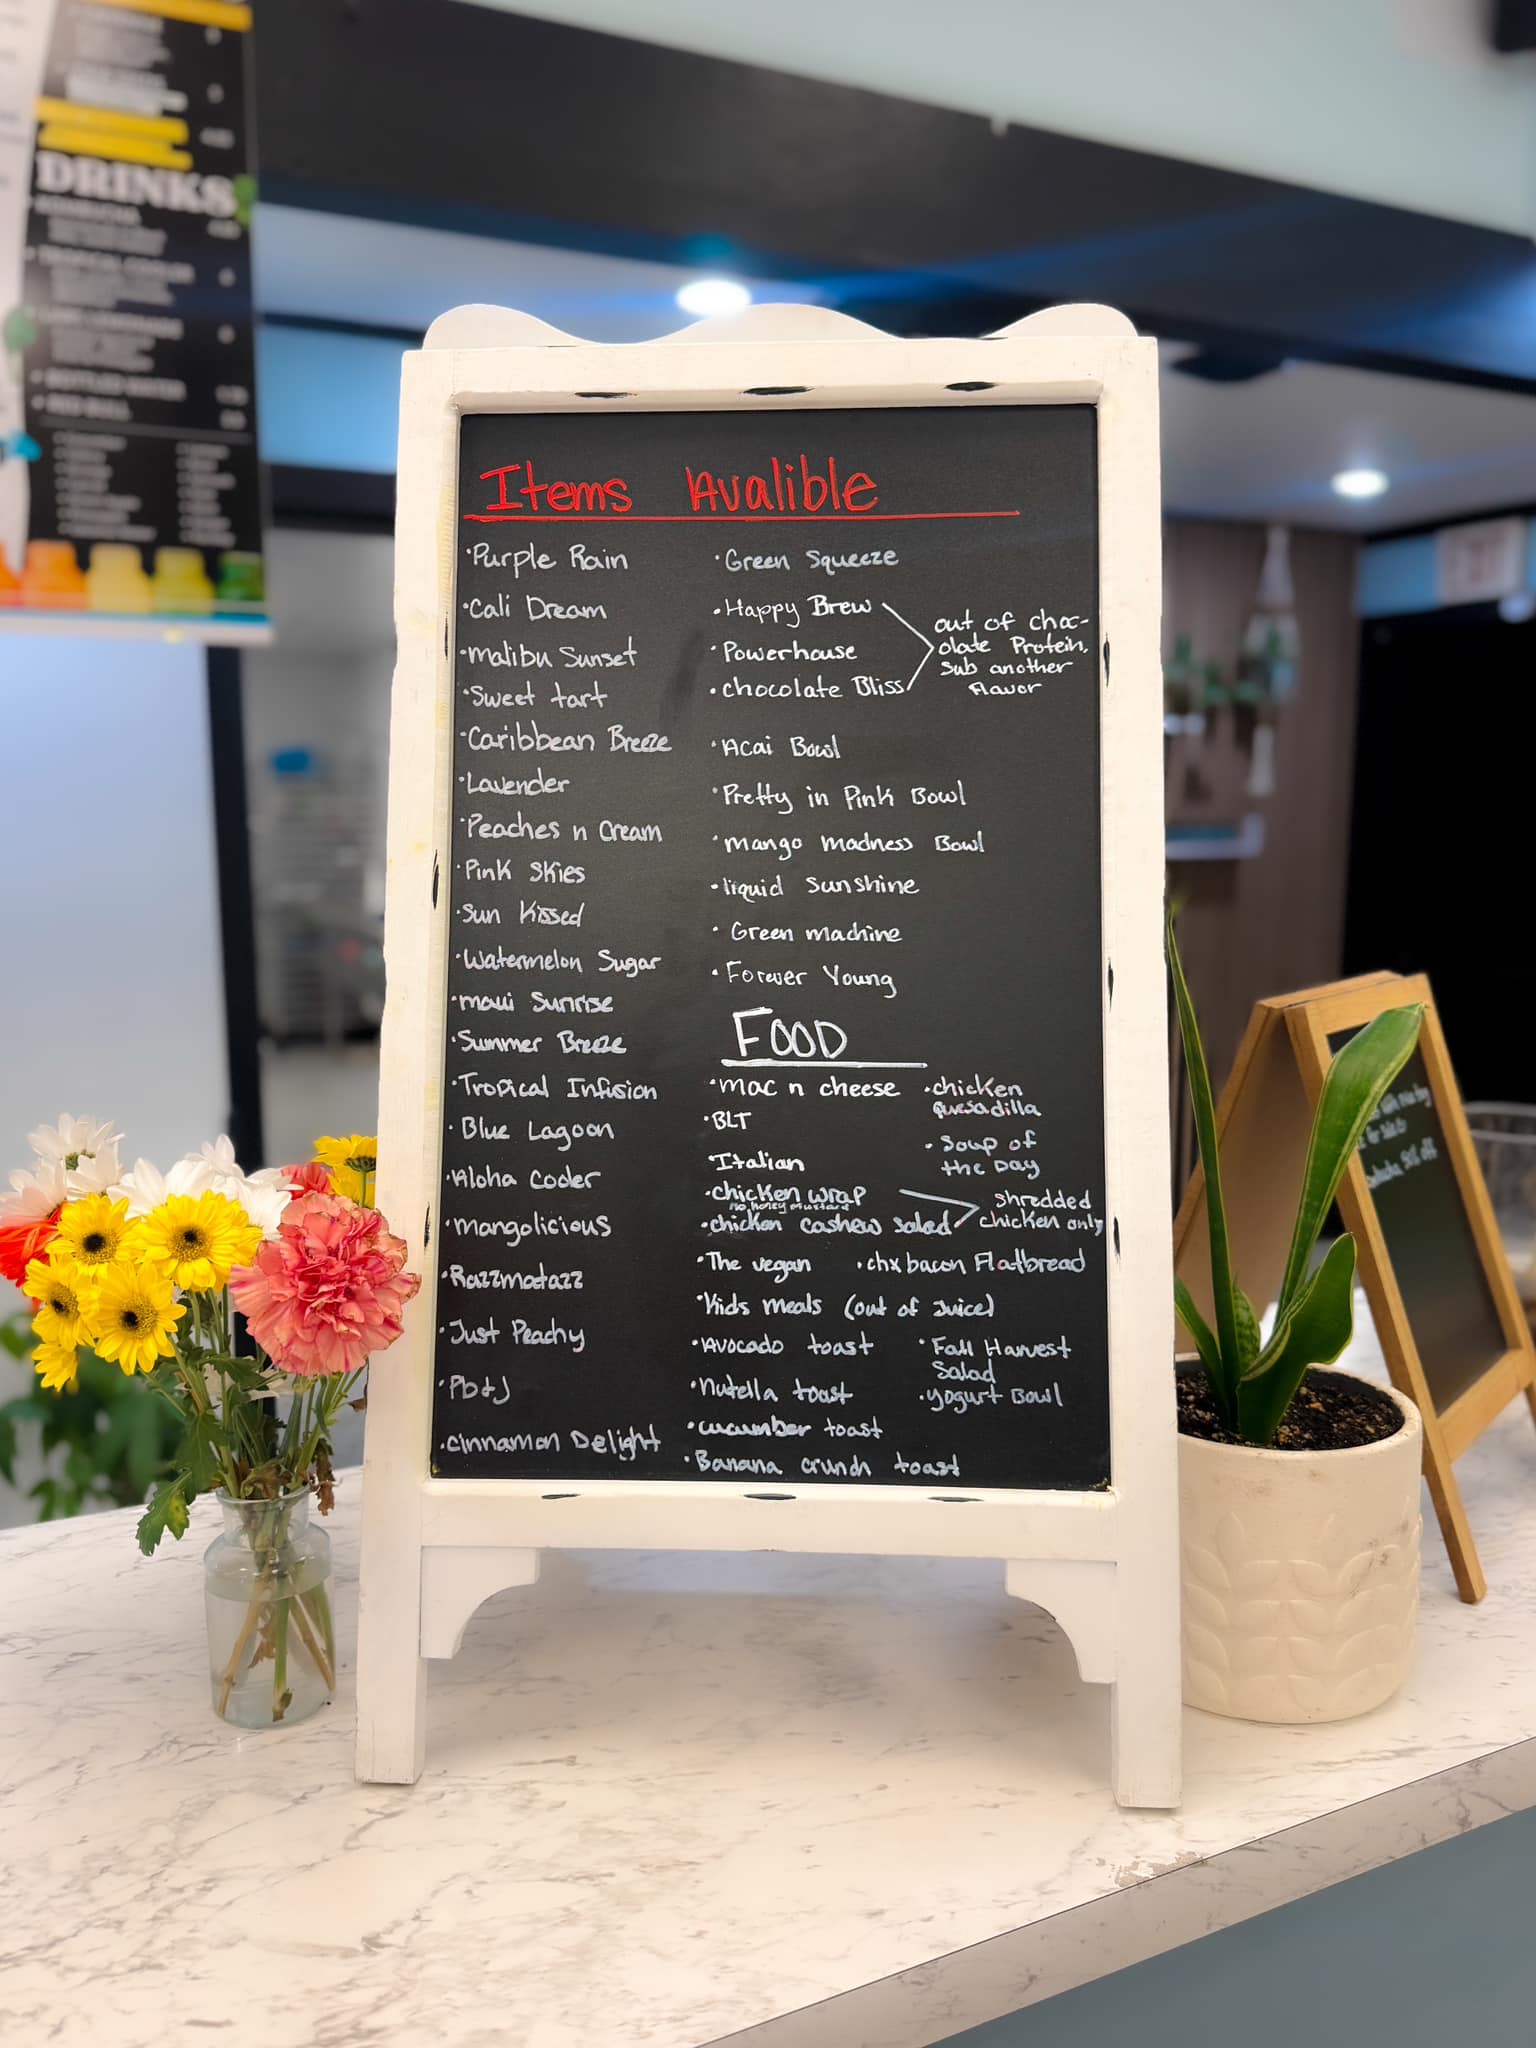 DRINKS
Items Avalible
·Purple Rain
·Cali Dream
·malibu Sunset
·Sweet tart
·Caribbean Breeze
·Lavender
·Peaches n Cream
·Pink Skies
·Sun Kissed
·Watermelon Sugar
·maui Sunrise
·Summer Breeze
·Tropical Infusion
·Blue Lagoon
·Aloha Cooler
·mangolicious
·Razzmatazz
·Just Peachy
·Pb&J
·cinnamon Delight
·Green Squeeze
·Happy Brew
·Powerhouse
·chocolate Bliss
out of choc-
olate Protein,
sub another
flavor
·Acai Bowl
·Pretty in Pink Bowl
·mango madness Bowl
·liquid Sunshine
·Green machine
·Forever Young
FOOD
·mac n cheese
·BLT
·Italian
·chicken wrap
no honey mustard
·chicken cashew salad
·The vegan
·Kids meals (out of Juice)
·Avocado toast
·Nutella toast
·cucumber toast
·Banana crunch toast
·chicken
quesadilla
·Soup of
the Day
shredded
chicken only
·chx bacon Flatbread
·Fall Harvest
Salad
·yogurt Bowl
50% off